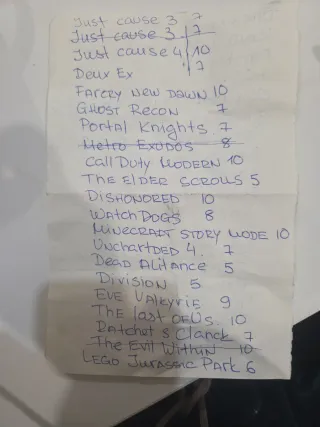 Just cause 3 7
Just cause 3 7
Just cause 4 10
Deux Ex 7
Farcry New Dawn 10
Ghost Recon 7
Portal Knights 7
Metro Exodos 8
Call Duty Modern 10
The Elder Scrolls 5
Dishonored 10
Watch Dogs 8
Minecraft Story Mode 10
Unchartded 4. 7
Dead Alitance 5
Division 5
Eve Valkyrie 9
The last of Us. 10
Ratchet s Clanck 7
The Evil Within 10
Lego Jurassic Park 6